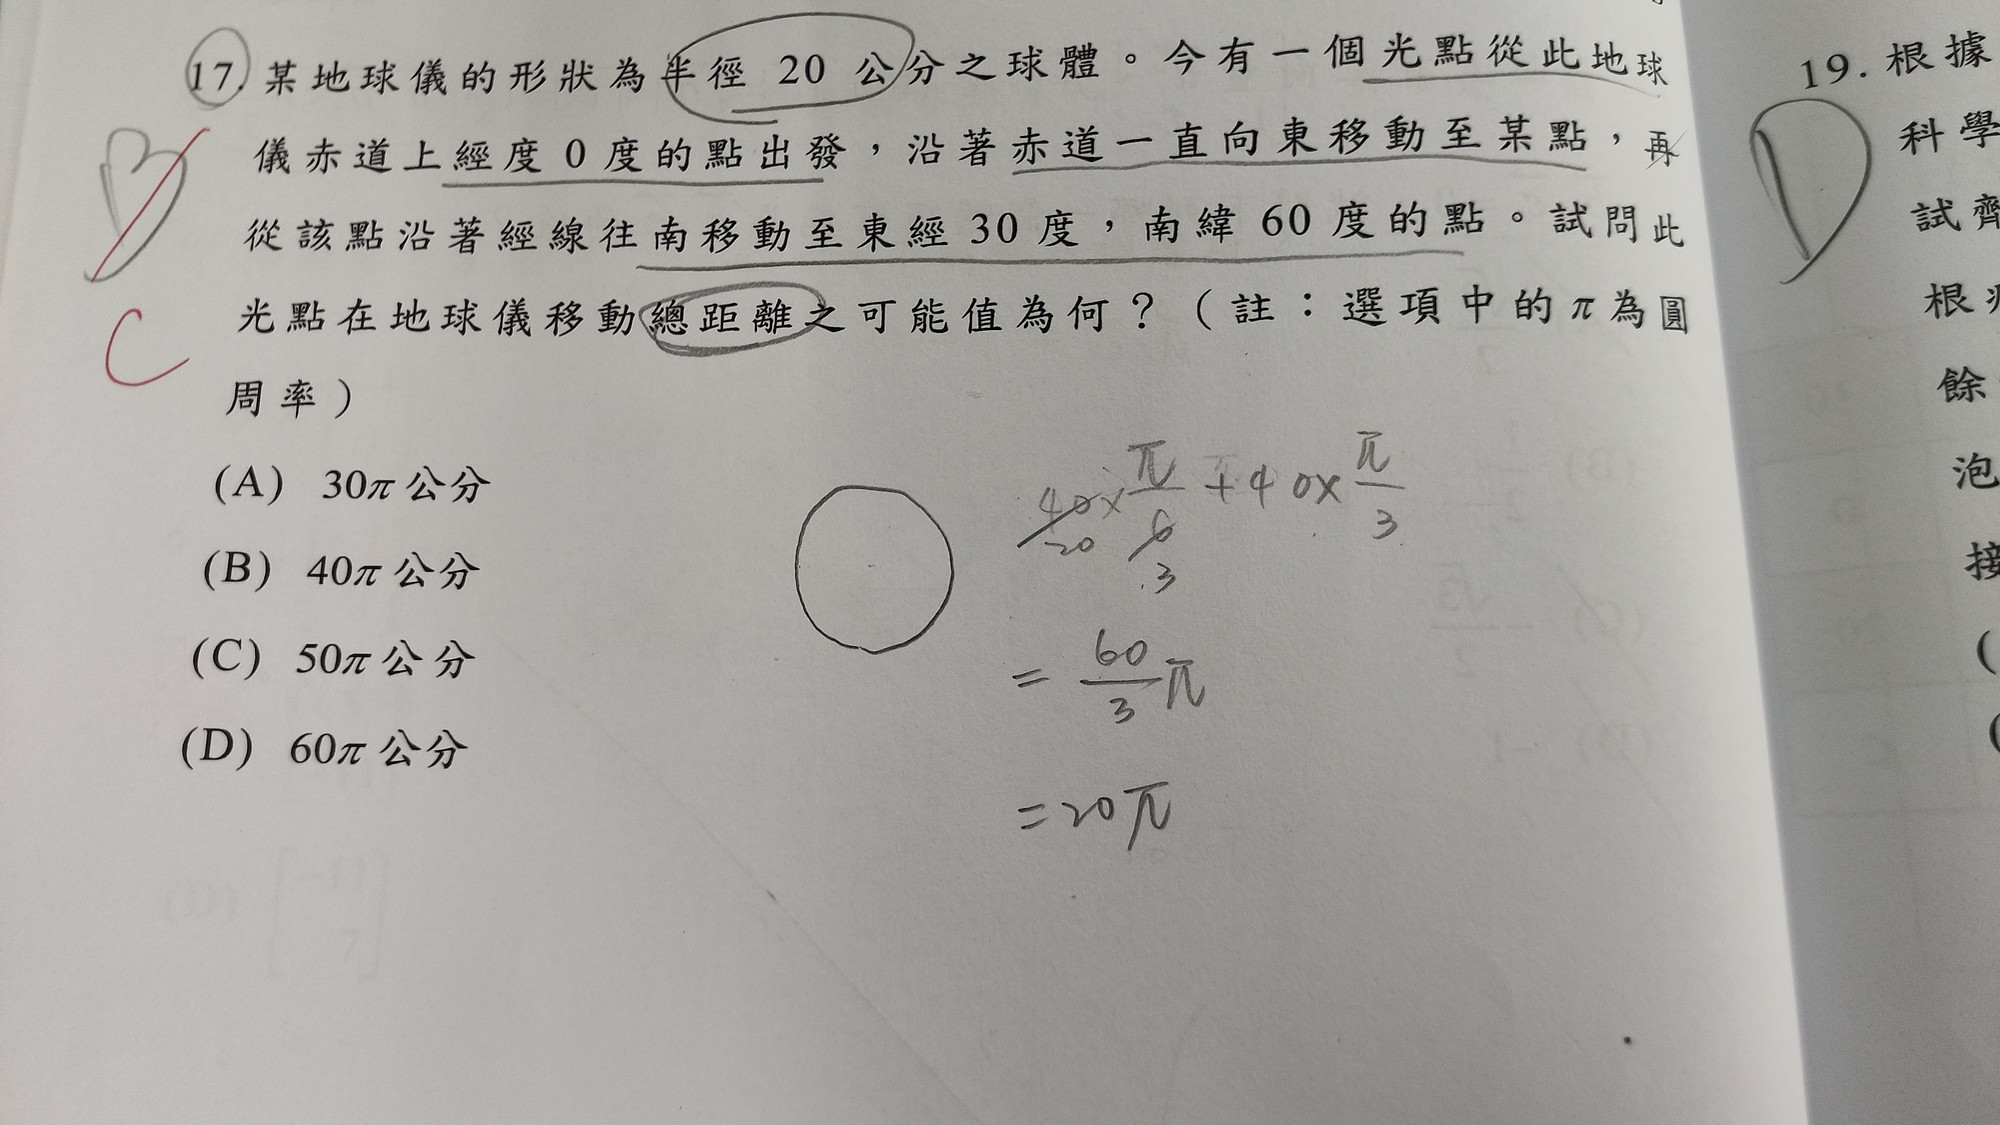 17. 某地球儀的形狀為半徑 20 公分之球體。今有一個光點從此地球
儀赤道上經度 0 度的點出發，沿著赤道一直向東移動至某點，再
從該點沿著經線往南移動至東經 30 度，南緯 60 度的點。試問此
光點在地球儀移動總距離之可能值為何？（註：選項中的π為圓
周率）
B
C
(A) 30π公分
(B) 40π公分
(C) 50π公分
(D) 60π公分
40×π/6+40×π/3
20 3
= 60/3 π
=20π
19. 根據
D
科學
試
根
餘
泡
接
(
(